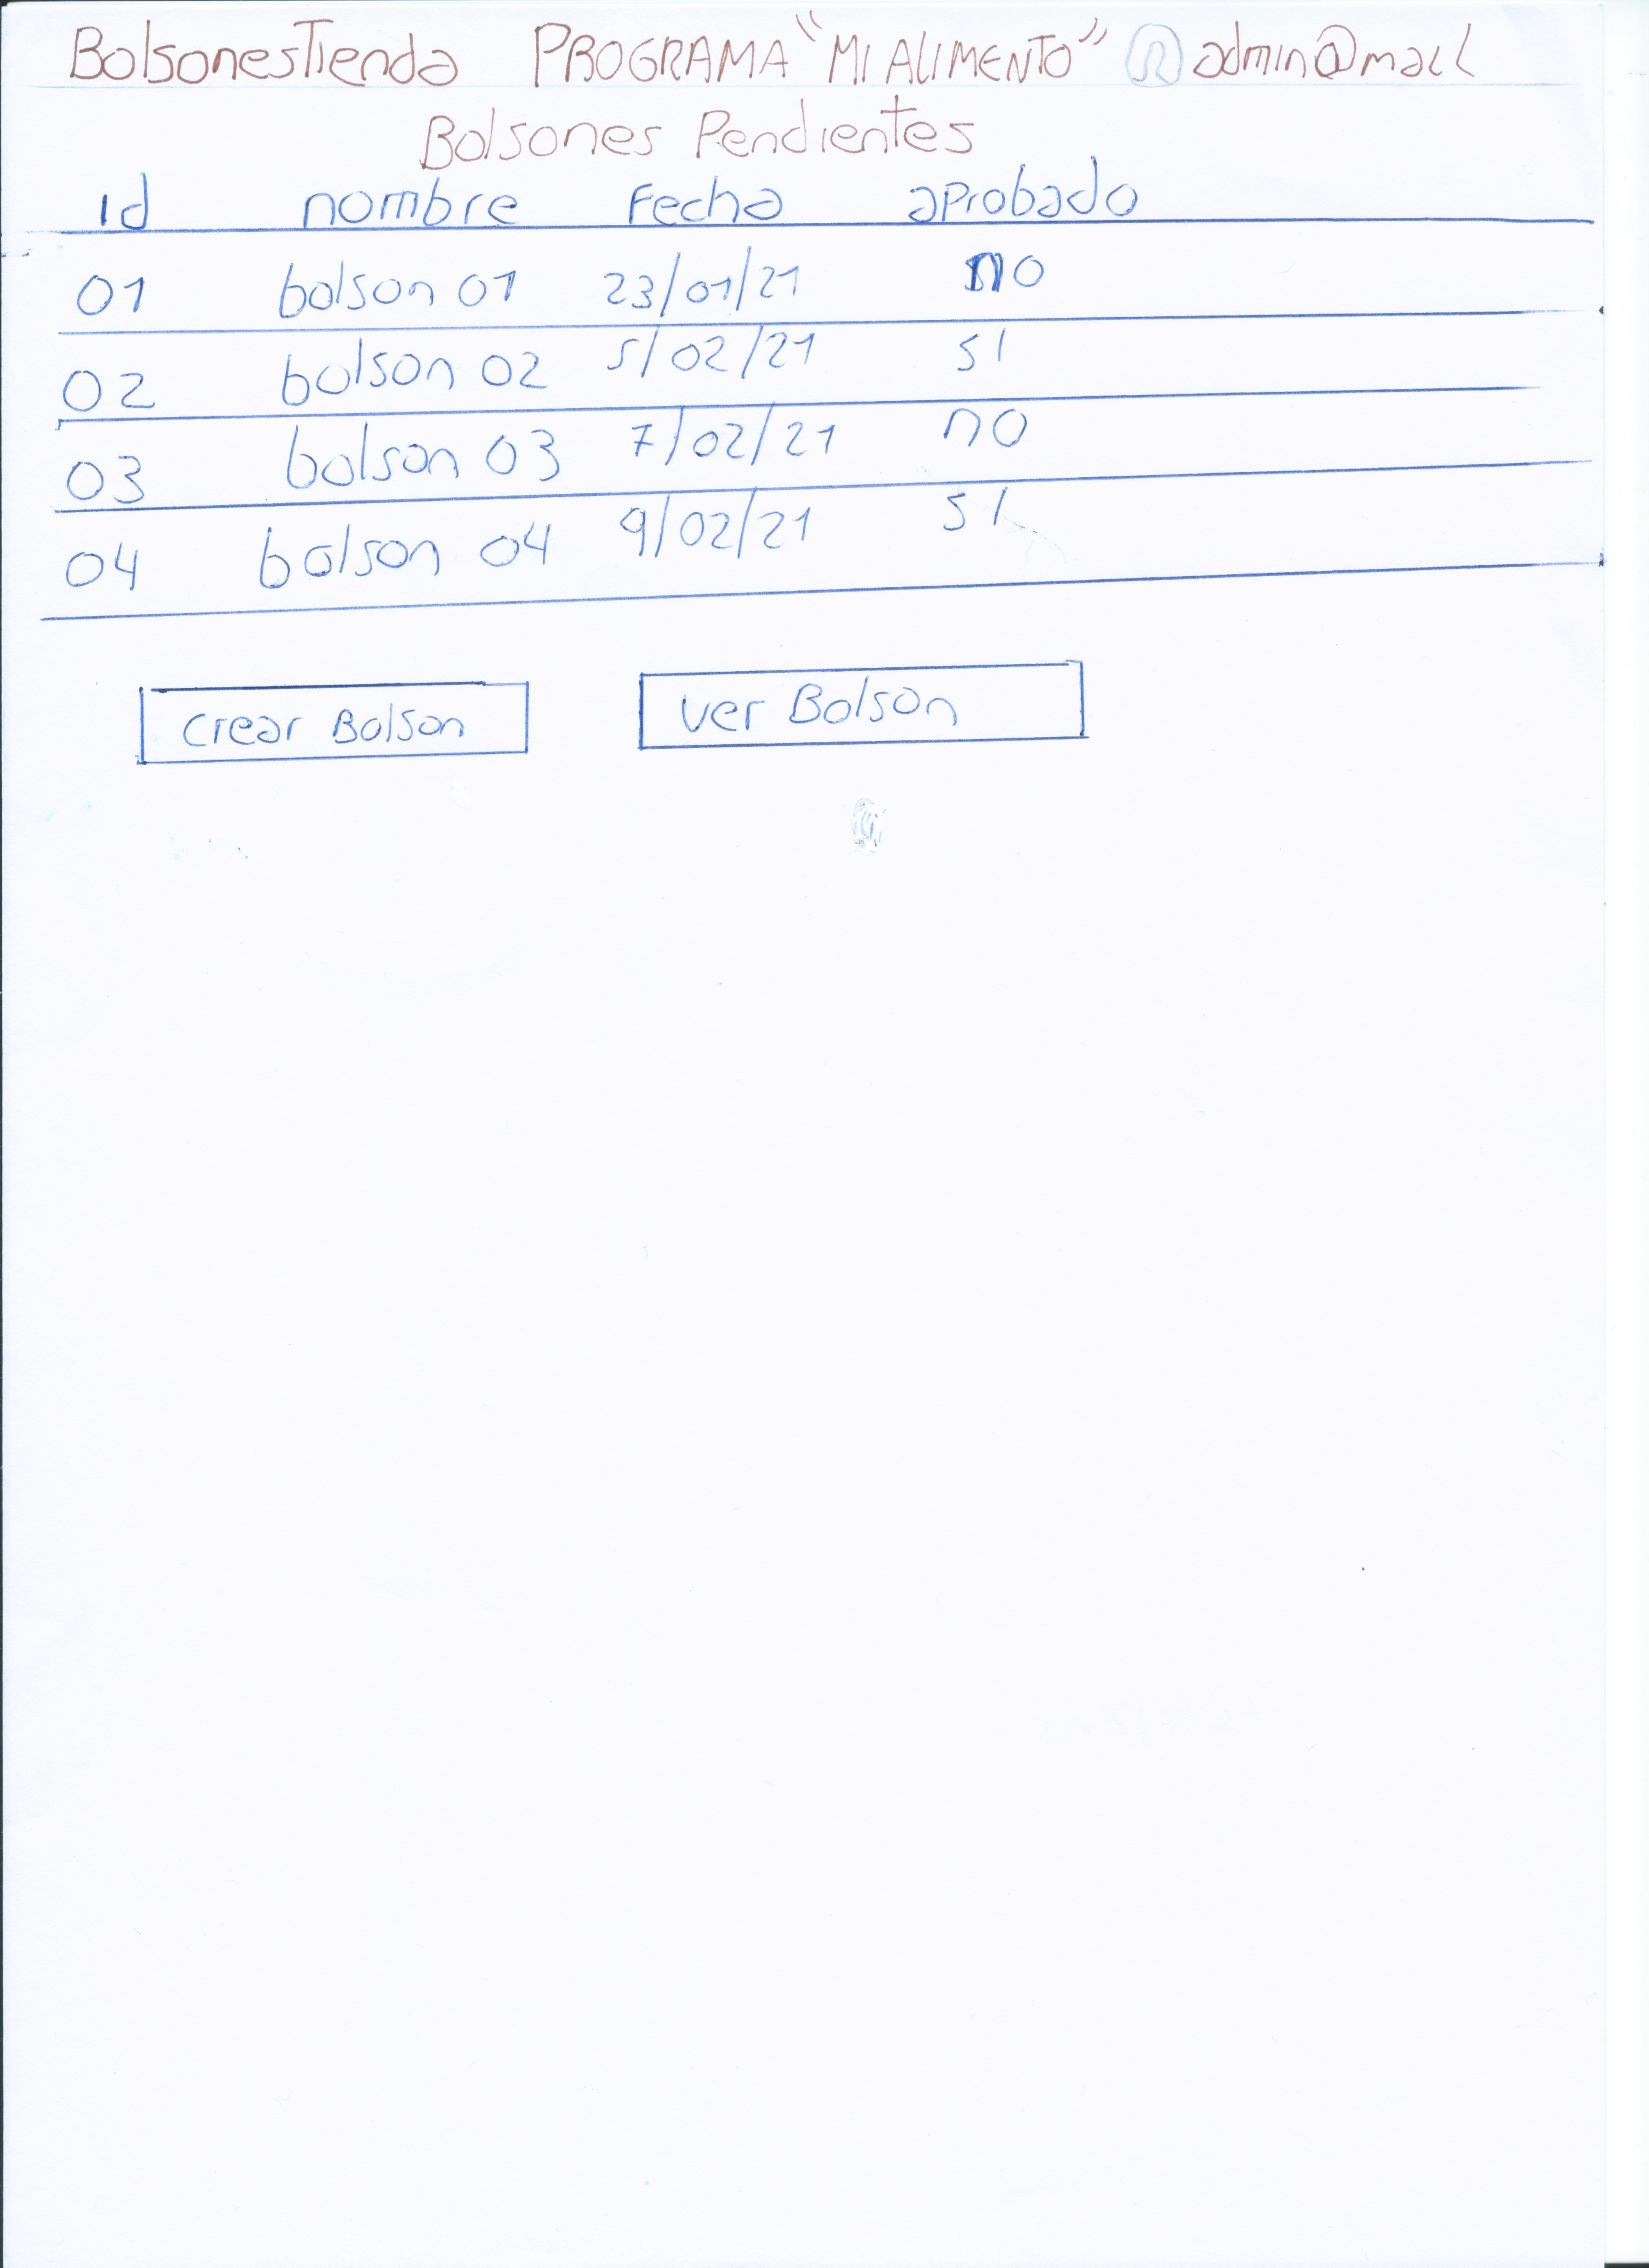 BolsonesTienda PROGRAMA "MI ALIMENTO" admin@mail
Bolsones Pendientes
id nombre Fecha aprobado
01 bolson 01 23/01/21 no
02 bolson 02 5/02/21 si
03 bolson 03 7/02/21 no
04 bolson 04 9/02/21 si
crear Bolson ver Bolson